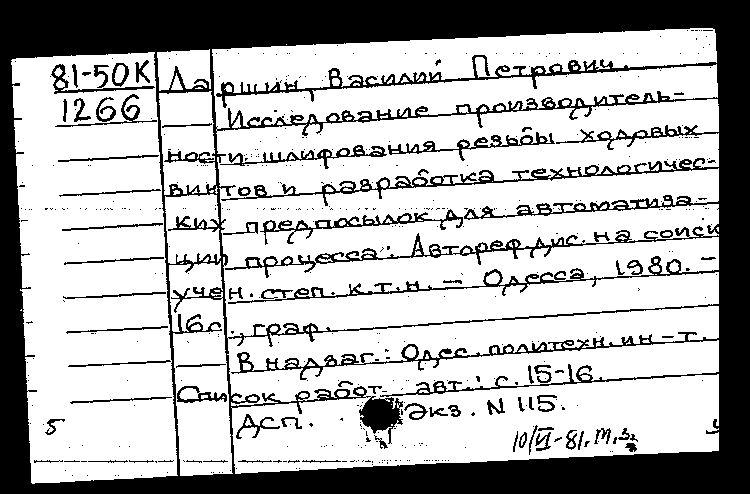 81-50К Ларшин, Василий Петрович.
1266 Исследование производитель-
ности шлифования резьбы ходовых
винтов и разработка технологичес-
ких предпосылок для автоматиза-
ции процесса: Автореф. дис. на соиск
учен. степ. к.т.н. – Одесса, 1980. –
16с., граф.
В надзаг.: Одес. политехн. ин-т.
Список работ авт.: с. 15-16.
ДСП. Экз. N 115.
5 10/VI-81. т.з.